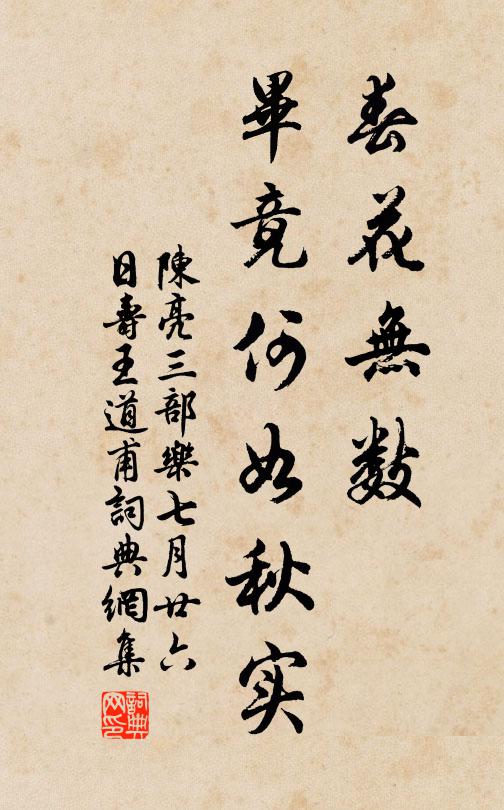 春花無數
畢竟何如秋实
陳亮三部樂七月廿六
日壽王道甫詞典網集
詞典
网印